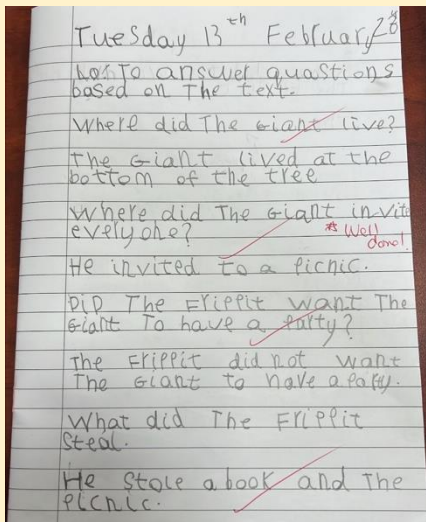 Tuesday 13th February
LO: To answer quastions
based on The text.
Where did The Giant live?
The Giant lived at the
bottom of the tree
Where did The Giant invite
everyone?
* Well
done!
He invited to a picnic.
DiD The Frippit want The
Giant To have a party?
The Frippit did not want
The Giant to have a party.
What did The Frippit
Steal.
He stole a book and The
picnic.